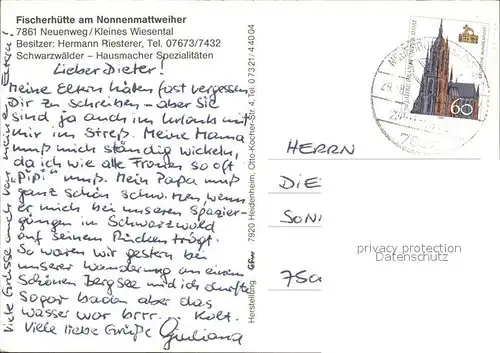 Fischerhütte am Nonnenmattweiher
7861 Neuenweg/Kleines Wiesental
Besitzer: Hermann Riesterer, Tel. 07673/7432
Schwarzwälder – Hausmacher Spezialitäten
Lieber Dieter!
Meine Eltern hätten fast vergessen
Dir zu schreiben – aber sie
sind ja auch im Urlaub mit
mir im Streß. Meine Mama
muß mich ständig wickeln,
da ich wie alle Frauen so oft
"Pipi" muß. Mein Papa muß
ganz schön schwitzen, wenn
er mich bei unseren Spazier-
gängen im Schwarzwald
auf seinem Rücken trägt.
So waren wir gestern bei
unserer Wanderung an einem
schönen Bergsee und ich durfte
sogar baden aber das
Wasser war brrr... kalt.
Viele liebe Grüße Giuliana
Viele Grüsse auch von meinen Eltern!
Herstellung: 7920 Heidenheim, Otto-Kocher-Str. 4, Tel. 0 73 21 / 4 40 04
60
HERRN
DIE
SON
750
privacy protection
Datenschutz